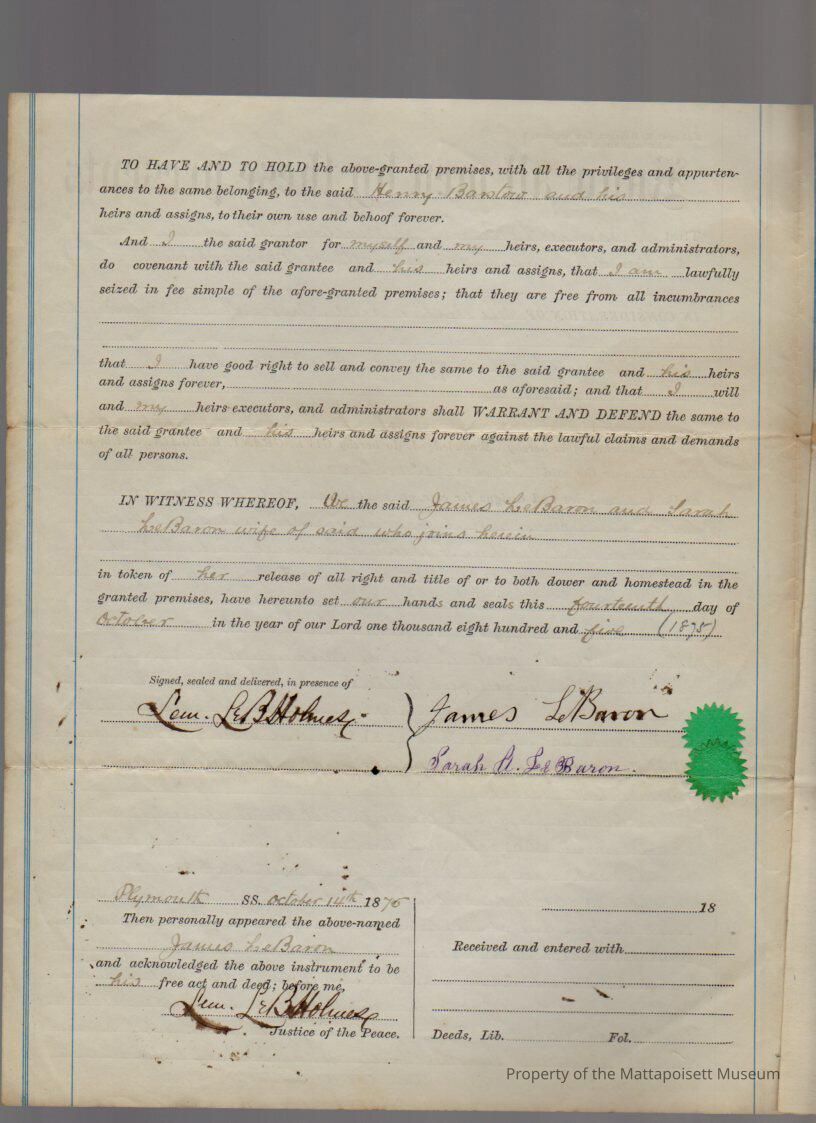 TO HAVE AND TO HOLD the above-granted premises, with all the privileges and appurten-
ances to the same belonging, to the said Henry Barstow and his
heirs and assigns, to their own use and behoof forever.
And I the said grantor for myself and my heirs, executors, and administrators,
do covenant with the said grantee and his heirs and assigns, that I am lawfully
seized in fee simple of the afore-granted premises; that they are free from all incumbrances
that I have good right to sell and convey the same to the said grantee and his heirs
and assigns forever, as aforesaid; and that I will
and my heirs executors, and administrators shall WARRANT AND DEFEND the same to
the said grantee and his heirs and assigns forever against the lawful claims and demands
of all persons.
IN WITNESS WHEREOF, We the said James LeBaron and Sarah
LeBaron wife of said who joins herein
in token of her release of all right and title of or to both dower and homestead in the
granted premises, have hereunto set our hands and seals this fourteenth day of
October in the year of our Lord one thousand eight hundred and five (1875)
Signed, sealed and delivered, in presence of
Lem. LeB Holmes James LeBaron
Sarah A. LeBaron.
Plymouth SS. October 14th 1875
Then personally appeared the above-named
James LeBaron
and acknowledged the above instrument to be
his free act and deed; before me,
Lem. LeB Holmes
Justice of the Peace.
18
Received and entered with
Deeds, Lib. Fol.
Property of the Mattapoisett Museum